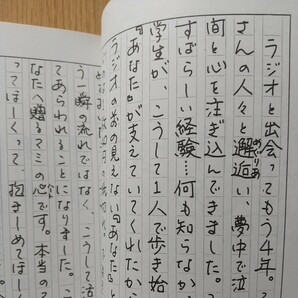 ラジオと出会ってもう4年。
さんの人々と邂逅い、夢中で泣
めぐりあ
間と心を注ぎ込んできました。
すばらしい経験…何も知らなか
学生が、こうして1人で歩き始
あなたが支えていてくれたから
ラジオのあの見えない"あなた"
う一瞬の流れではなく、こうして活
てあらわれることになりました。こ
なたへ贈るマミの心です。本当のマ
ってほーくって、抱きしめてほーく